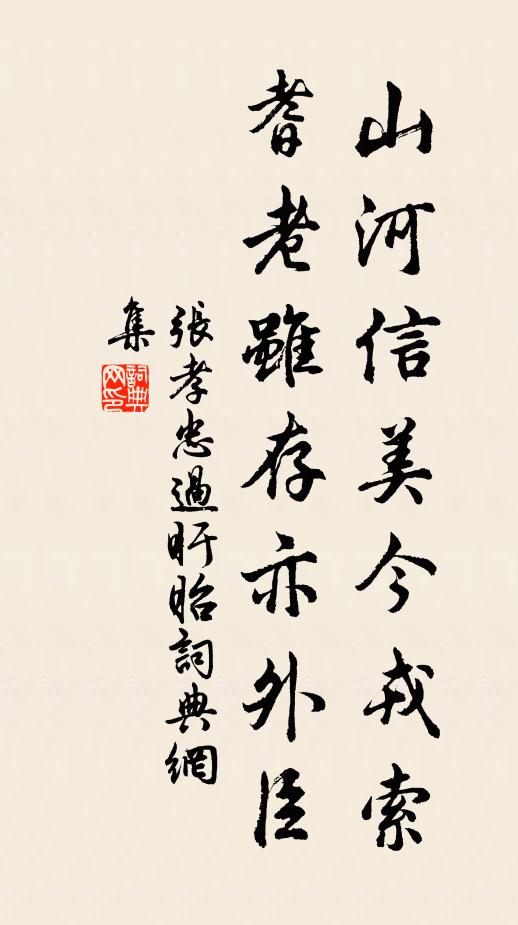 山河信美今戎索
耆老雖存亦外臣
張孝忠過盱眙詞典網
集
詞典
网印